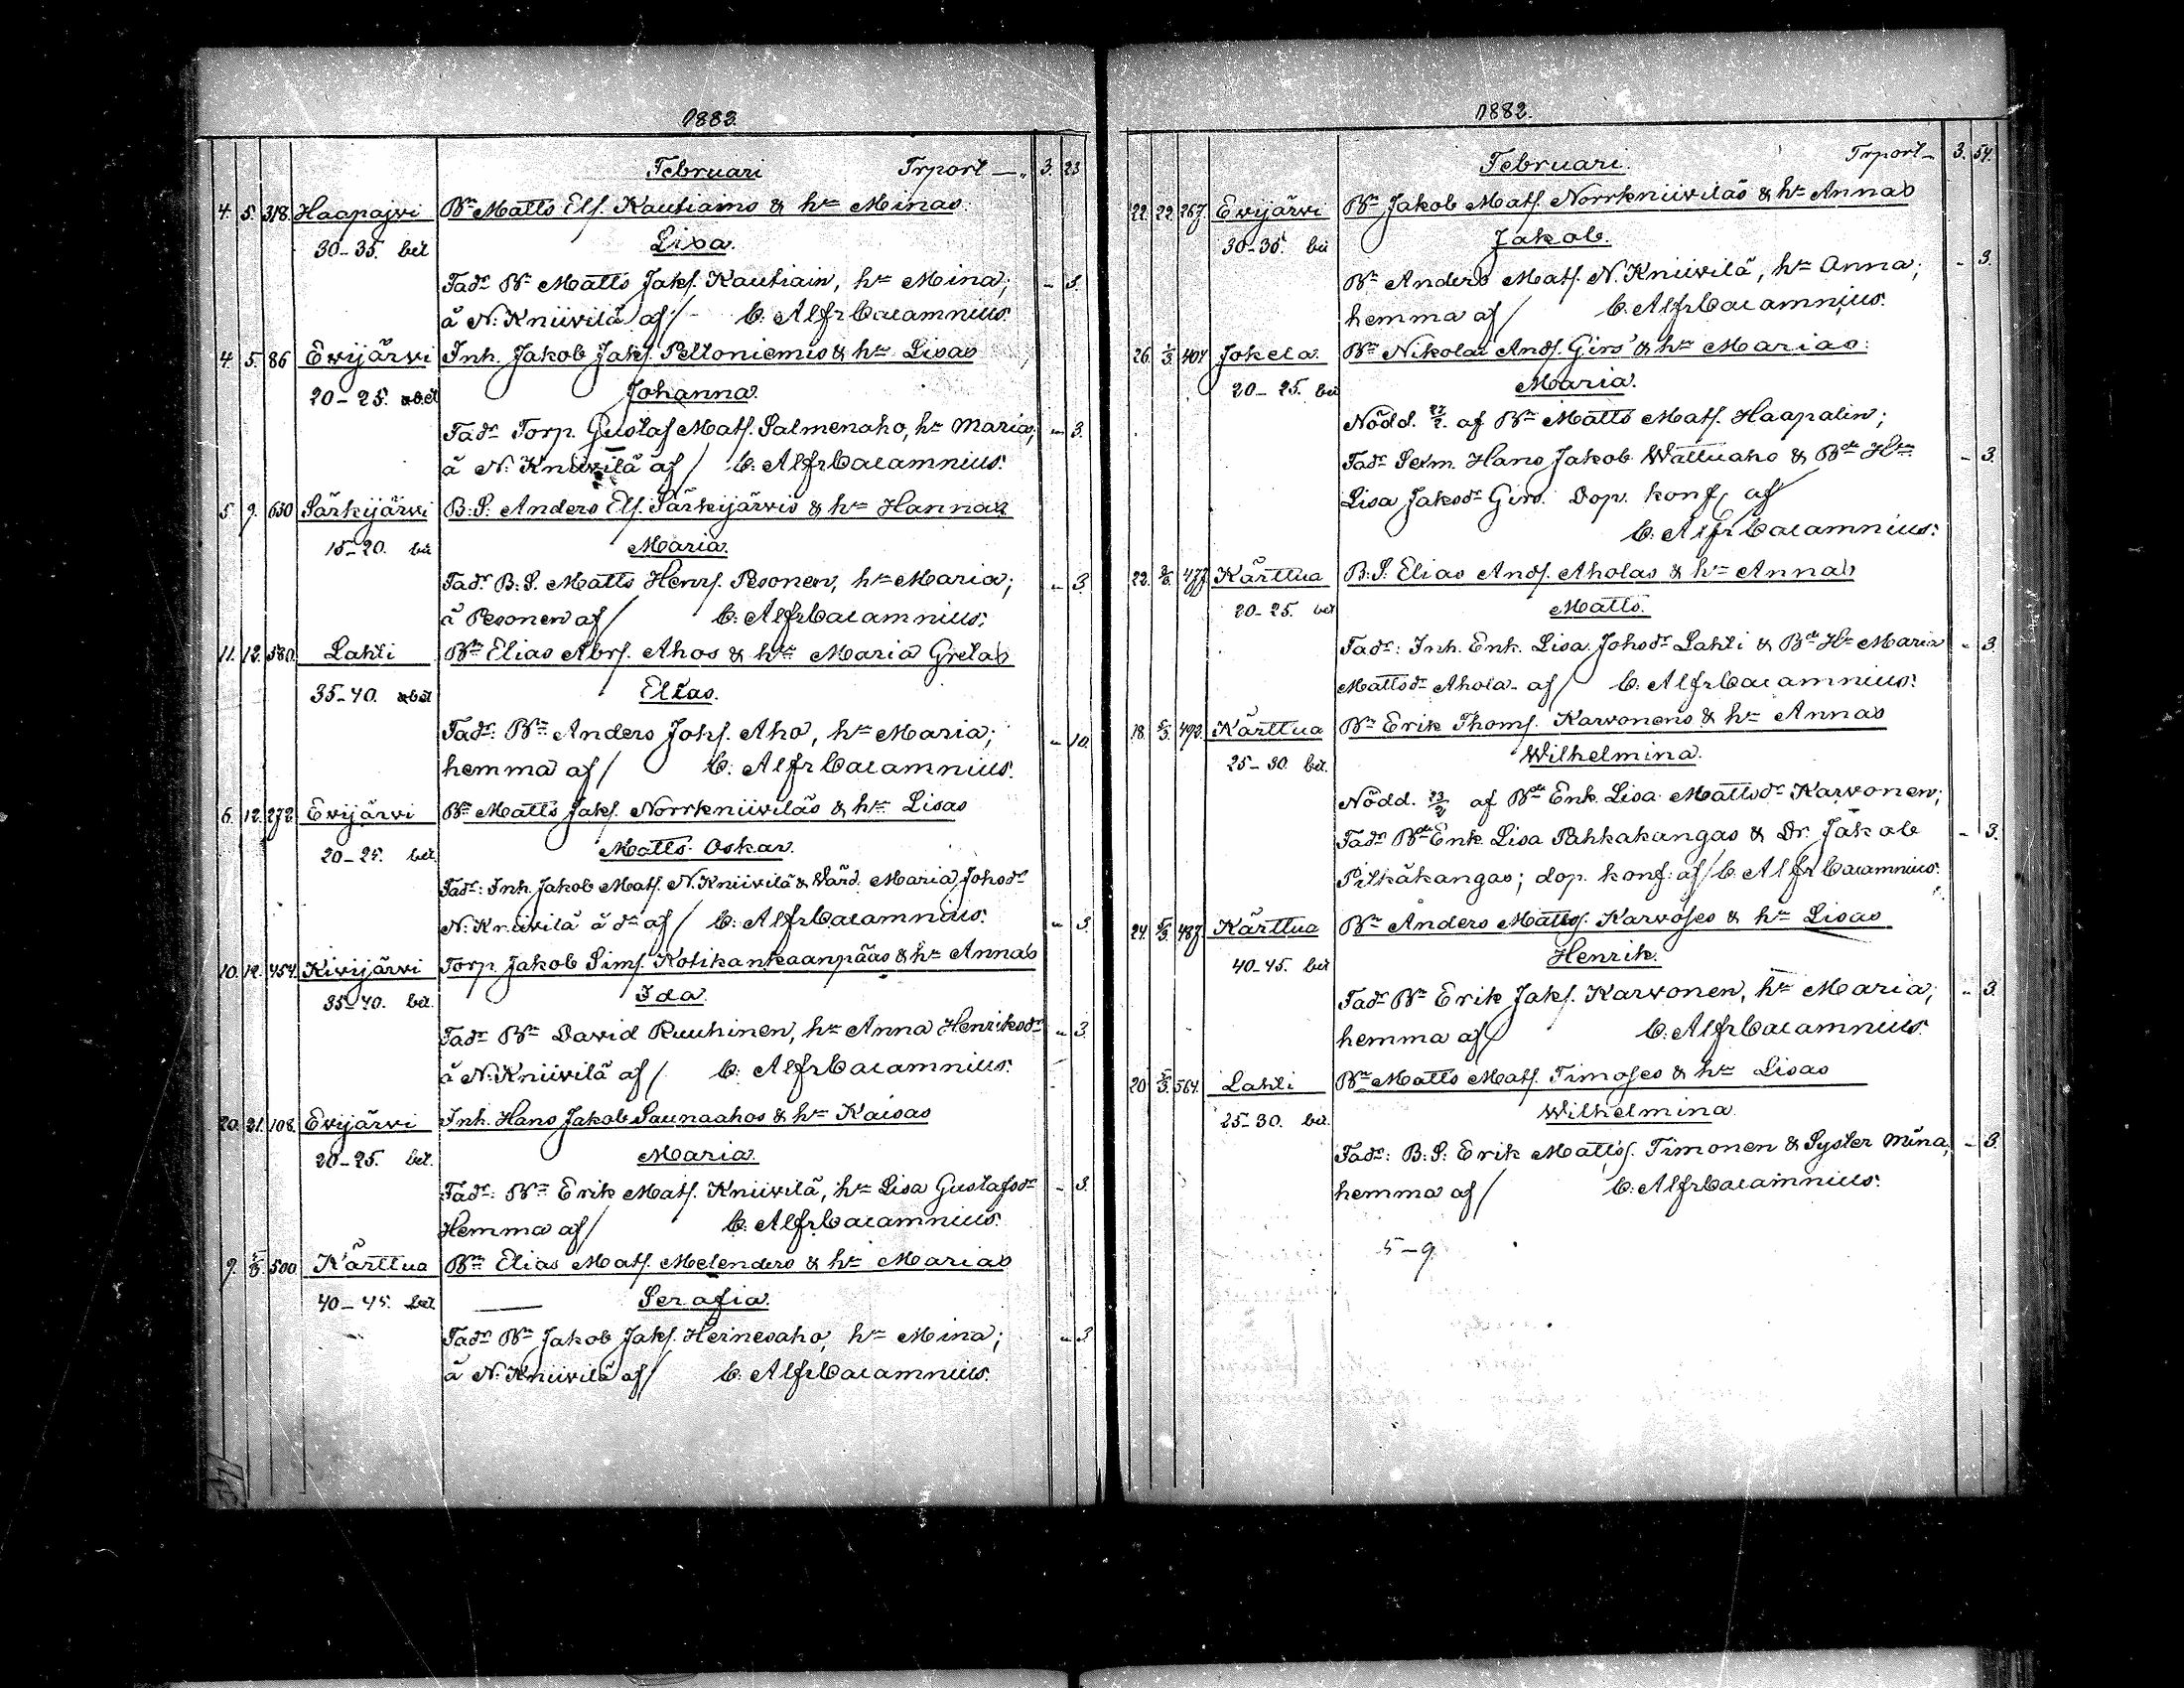 1882.
Februari Trport — " 3. 23
4. 5. 318. Haapajvi Bn Matts Els. Kautiains & hn Minas
30-35. bet Lisa.
Fadr Bn Matts Jaks. Kautiain, hn Mina; - 3.
å N: Kniivilä af / C: AlfrCalamnius.
4. 5. 86 Evijärvi Inh. Jakob Jaks. Peltoniemis & hn Lisas
20-25. bet Johanna.
Fadr Torp. Gustaf Mats. Salmenaho, hn Maria; - 3.
å N: Kniivilä af / C: AlfrCalamnius.
5. 9. 630 Särkijärvi B: S: Anders Els. Särkijärvis & hn Hannas
15-20. bet Maria.
Fadr B: S. Matts Henrs. Pesonen, hn Maria; - 3.
å Pesonen af / C: AlfrCalamnius.
11. 12. 580. Lahti Bn Elias Abrs. Ahos & hn Maria Gretas
35-40. bet Elias.
Fadr: Bn Anders Johs. Aho, hn Maria; - 10.
hemma af / C: AlfrCalamnius.
6. 12. 272. Evijärvi Bn Matts Jaks. Norrkniiviläs & hn Lisas
20-25. bet Matts Oskar.
Fadr: Inh. Jakob Mats. N. Kniivilä & Värd. Maria Johsdr
N: Kniivilä å dn af / C: AlfrCalamnius. - 3.
10. 12. 454. Kivijärvi Torp. Jakob Sims. Kotikankaanpääs & hn Annas
35-40. bet. Ida.
Fadr Bn David Ruuhinen, hn Anna Henriksdr - 3.
å N: Kniivilä af / C: AlfrCalamnius.
20. 21. 108. Evijärvi Inh. Hans Jakob Saunaahos & hn Kaisas
20-25. bet. Maria.
Fadr: Bn Erik Mats. Kniivilä, hn Lisa Gustafsdr - 3.
Hemma af / C: AlfrCalamnius.
9. 5/3. 500 Kärttua Bn Elias Mats. Melenders & hn Marias
40-45. bet. Serafia.
Fadr Bn Jakob Jaks. Heinesaho, hn Mina; - 3
å N: Kniivilä af / C: AlfrCalamnius.
1882.
Februari. Trport - 3. 54.
22. 22. 267. Evijärvi Bn Jakob Mats. Norrkniiviläs & hn Annas
30-35. bet Jakob.
Bn Anders Mats. N. Kniivilä, hn Anna; - 3.
hemma af / C: AlfrCalamnius.
26. 1/3. 404 Jokela. Bn Nikolai Ands. Girs' & hn Marias.
20-25. bet Maria.
Nödd. 27/2. af Bn Matts Mats. Haapalin;
Fadr Sexm. Hans Jakob Wattuaho & Bde Hn - 3.
Lisa Jaksdr Girs. Dop. konf. af /
C: AlfrCalamnius.
22. 477 Kärttua B: S: Elias Ands. Aholas & hn Annas
20-25. bet Matts.
Fadr: Inh. Enk. Lisa Johsdr Lahti & Bde Hn Maria - 3.
Mattsdr Ahola. af / C: AlfrCalamnius.
18. 5/3. 492. Kärttua Bn Erik Thoms. Karvonens & hn Annas
25-30. bet. Wilhelmina.
Nödd. 23/2 af Bde Enk. Lisa Mattsdr Karvonen;
Fadr Bde Enk. Lisa Pahkakangas & Dr. Jakob - 3.
Pitkäkangas; dop. konf: af / C: AlfrCalamnius.
24. 5/3. 487 Kärttua Bn Anders Matts. Karvoses & hn Lisas
40-45. bet Henrik.
Fadr Bn Erik Jaks. Karvonen, hn Maria; - 3.
hemma af / C: AlfrCalamnius.
20 5/3. 564. Lahti Bn Matts Mats. Timoses & hn Lisas
25-30. bet. Wilhelmina
Fadr: B: S: Erik Matts. Timonen & Syster Mina; - 3.
hemma af / C: AlfrCalamnius.
5-9.